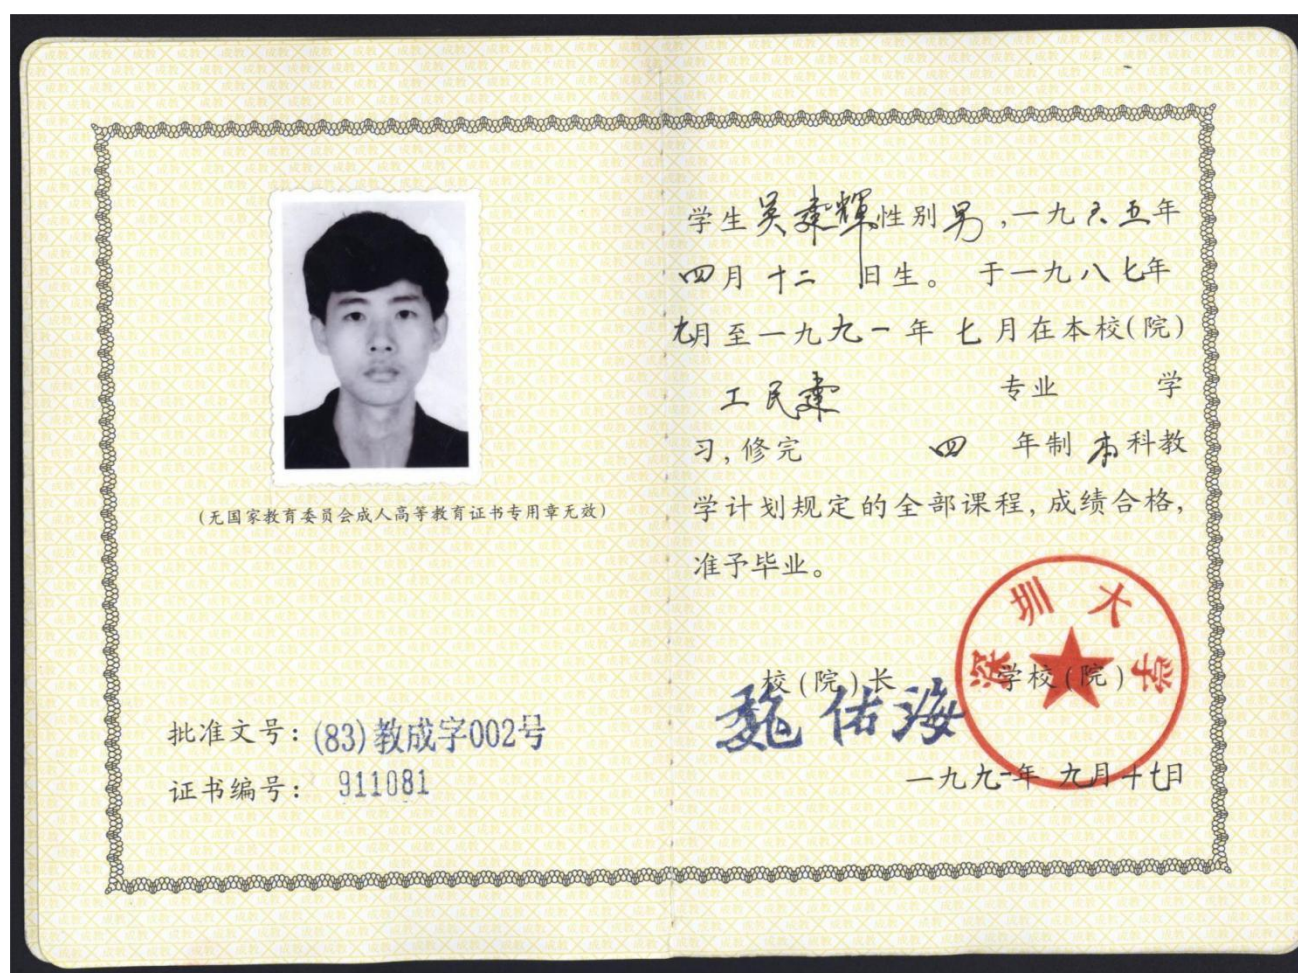 (无国家教育委员会成人高等教育证书专用章无效)
批准文号: (83)教成字002号
证书编号: 911081
学生吴建輝性别男,一九六五年
四月十二日生。于一九八七年
九月至一九九一年七月在本校(院)
工民建 专业 学
习,修完 四 年制本科教
学计划规定的全部课程,成绩合格,
准予毕业。
深圳大学
校(院)长 学校(院)
魏佑海
一九九一年九月十七日